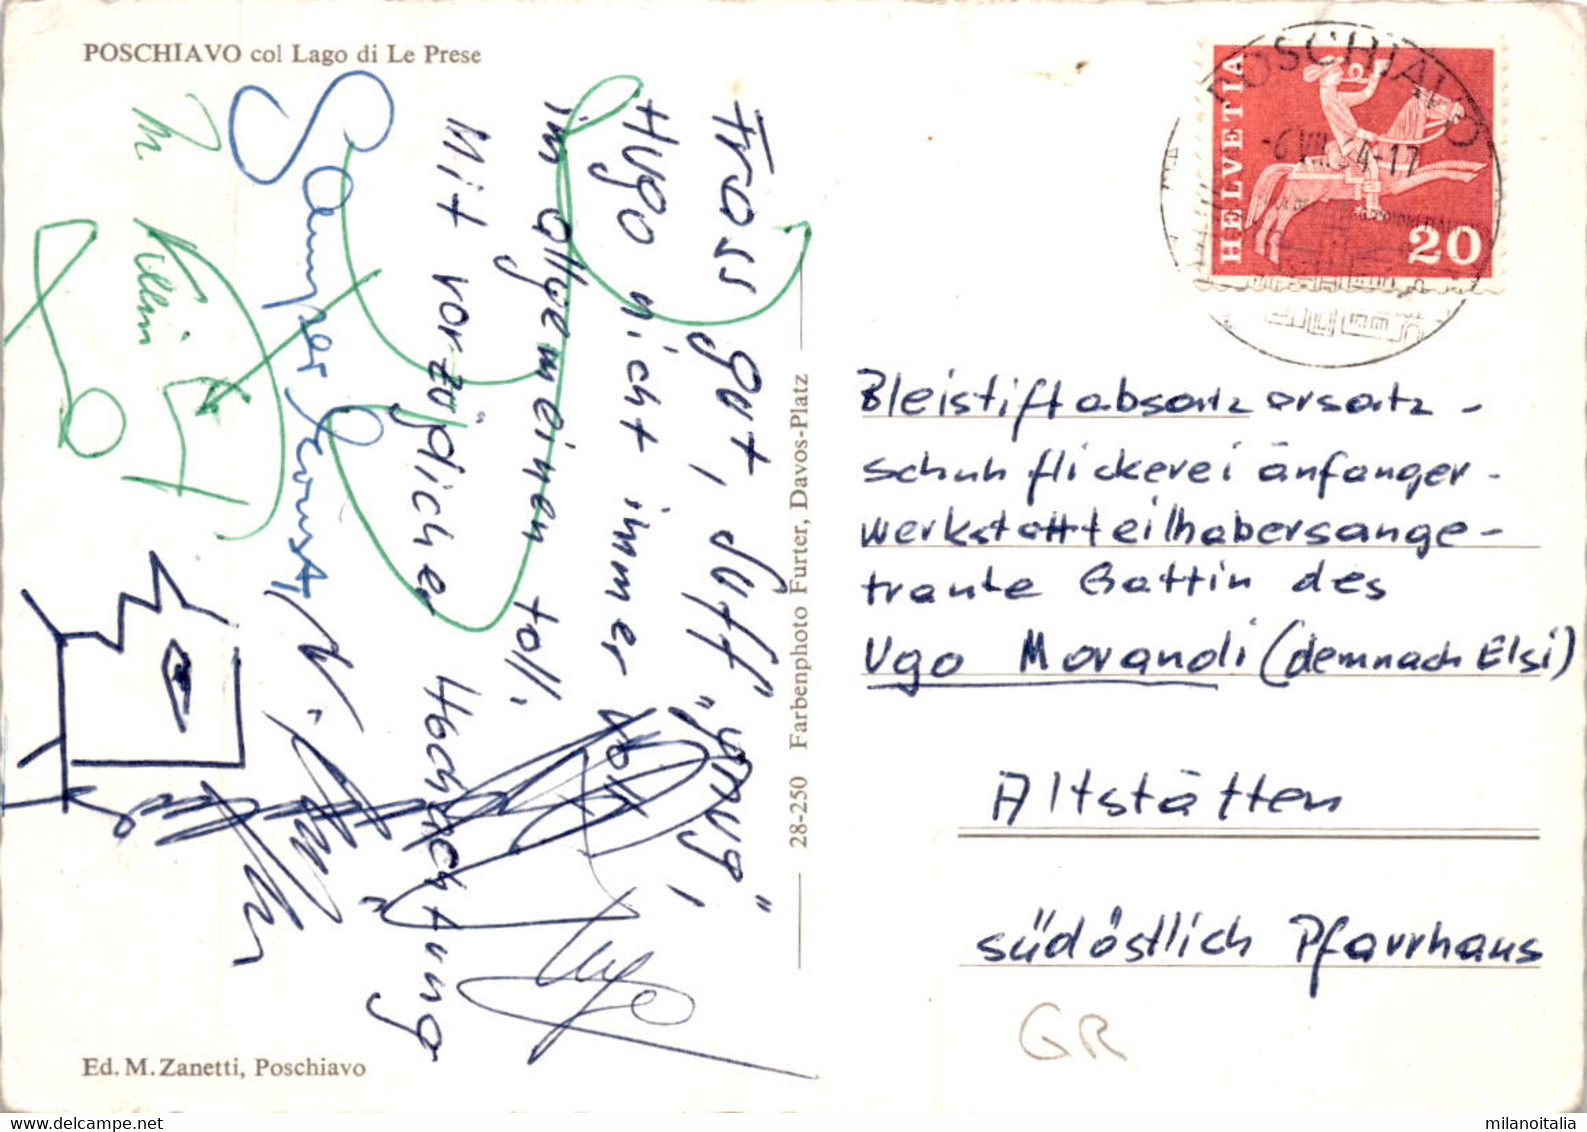 POSCHIAVO col Lago di Le Prese
Frass gut, suff „gnug“,
Hugo nicht immer voll
im allgemeinen toll.
Mit vorzüglicher Hochachtung
Hugo
28-250 Farbenphoto Furter, Davos-Platz
Ed. M. Zanetti, Poschiavo
POSCHIAVO
HELVETIA
20
Bleistiftabsatzersatz-
schuhflickereianfänger-
werkstatteilhabersange-
traute Gattin des
Ugo Morandi (demnach Elsi)
Altstätten
südöstlich Pfarrhaus
GR
www.delcampe.net
milanoitalia